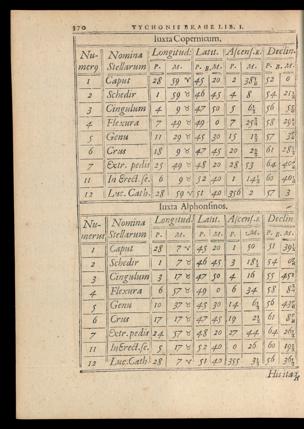 370 TYCHONIS BRAHE LIB. I.
Iuxta Copernicum.
Numerq Nomina Stellarum Longitud: Latit. Ascens.r. Declin.
P. M. P. B. M. P. M. P. B. M.
1 Caput 28 59 ♈ 45 20 2 52 0
2 Schedir 1 59 ♉ 46 45 4 8 54
3 Cingulum 4 9 ♉ 47 50 5 56
4 Flexura 7 49 ♉ 49 0 7 58
5 Genu 11 29 ♉ 45 30 15 57
6 Crus 18 9 ♉ 47 45 20 61
7 Extr. pedis 25 49 ♉ 48 20 28 53 64
11 In Erect.se. 6 9 ♉ 52 40 1 60
12 Luc. Cath. 28 59 ♈ 51 40 356 2 57 3
Iuxta Alphonsinos.
Numerus Nomina Stellarum Longitud: Latit. Ascens.r. Declin
P. M. P. M. P. M. P. B. M.
1 Caput 28 7 ♈ 45 20 1 50 51
2 Schedir 1 7 ♉ 46 45 3 54
3 Cingulum 3 17 ♉ 47 50 4 16 55
4 Flexura 6 57 ♉ 49 0 6 34 58
5 Genu 10 37 ♉ 45 30 14 56
6 Crus 17 17 ♉ 47 45 19 61
7 Extr. pedis 24 57 ♉ 48 20 27 44 64
11 In Erect.se. 5 17 ♉ 52 40 0 26 60
12 Luc. Cath. 28 7 ♈ 51 40 355 56
His itaq